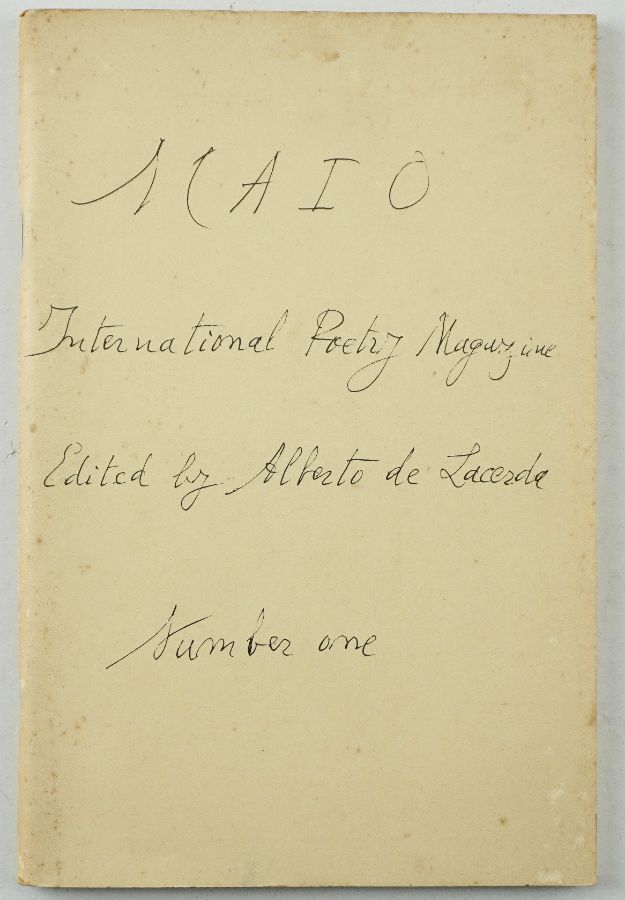 MAIO
International Poetry Magazine
Edited by Alberto de Lacerda
Number one